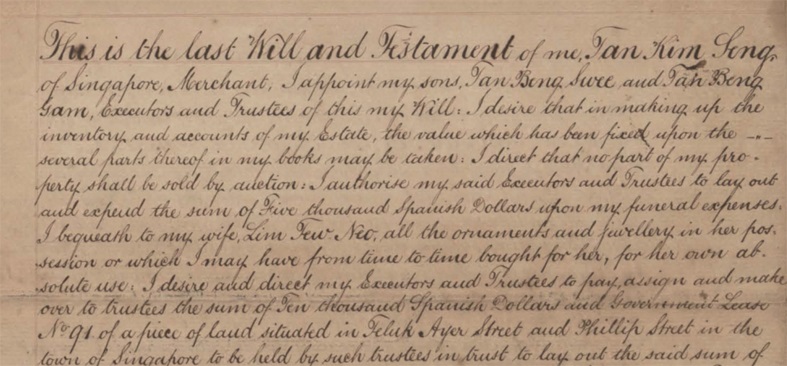 This is the last Will and Testament of me, Tan Kim Seng,
of Singapore, Merchant, I appoint my sons, Tan Beng Swee, and Tan Beng
Gam, Executors and Trustees of this my Will: I desire that in making up the
inventory and accounts of my Estate, the value which has been fixed upon the -.-
several parts thereof in my books may be taken: I direct that no part of my pro-
perty shall be sold by auction: I authorise my said Executors and Trustees to lay out
and expend the sum of Five thousand Spanish Dollars upon my funeral expenses:
I bequeath to my wife, Lim Tew Neo, all the ornaments and jewellery in her pos-
session or which I may have from time to time bought for her, for her own ab-
solute use: I desire and direct my Executors and Trustees to pay, assign and make
over to trustees the sum of Ten thousand Spanish Dollars and Government Lease
No 91 of a piece of land situated in Teluk Ayer Street and Phillip Street in the
town of Singapore to be held by such trustees in trust to lay out the said sum of